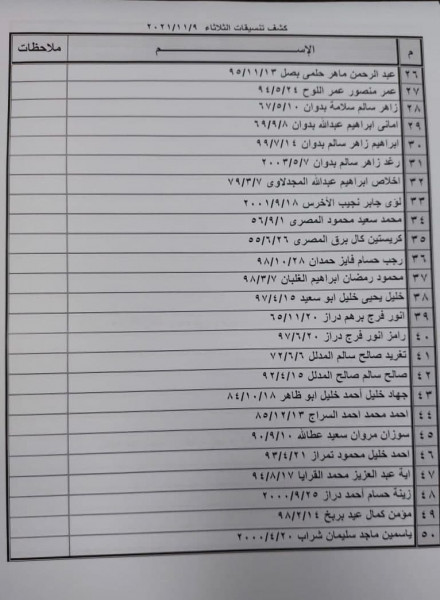 كشف تنسيقات الثلاثاء ٢٠٢١/١١/٩
م الإســـم ملاحظات
٢٦ عبد الرحمن ماهر حلمى بصل ٩٥/١١/١٣
٢٧ عمر منصور عمر اللوح ٩٤/٥/٢٤
٢٨ زاهر سالم سلامة بدوان ٦٧/٥/١٠
٢٩ امانى ابراهيم عبدالله بدوان ٦٩/٩/٨
٣٠ ابراهيم زاهر سالم بدوان ٩٩/٧/١٤
٣١ رغد زاهر سالم بدوان ٢٠٠٣/٥/٧
٣٢ اخلاص ابراهيم عبدالله المجدلاوى ٧٩/٣/٧
٣٣ لؤى جابر نجيب الأخرس ٢٠٠١/٩/١٨
٣٤ محمد سعيد محمود المصرى ٥٦/٩/١
٣٥ كريستين كال برق المصرى ٥٥/٦/٢٦
٣٦ رجب حسام فايز حمدان ٩٨/١٠/٢٨
٣٧ محمود رمضان ابراهيم الغلبان ٩٨/٣/٧
٣٨ خليل يحيى خليل ابو سعيد ٩٧/٤/١٥
٣٩ انور فرج برهم دراز ٦٥/١١/٢٠
٤٠ رامز انور فرج دراز ٩٧/٦/٢٠
٤١ تغريد صالح سالم المدلل ٧٢/٦/٦
٤٢ صالح سالم صالح المدلل ٩٢/٤/١٥
٤٣ جهاد خليل أحمد خليل ابو ظاهر ٨٤/١٠/١٨
٤٤ احمد محمد احمد السراج ٨٥/١٢/١٣
٤٥ سوزان مروان سعيد عطالله ٩٠/٩/١٠
٤٦ احمد خليل محمود تمراز ٩٣/٤/٢١
٤٧ اية عبد العزيز محمد القرايا ٩٤/٨/١٧
٤٨ زينة حسام أحمد دراز ٢٠٠٠/٩/٢٥
٤٩ مؤمن كمال عيد بريخ ٩٨/٢/١٤
٥٠ ياسمين ماجد سليمان شراب ٢٠٠٠/٤/٢٠